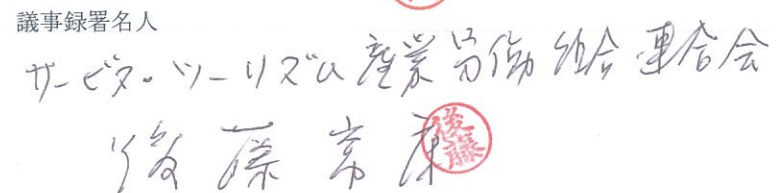 議事録署名人
サービス・ツーリズム産業労働組合連合会
後藤常康
後藤